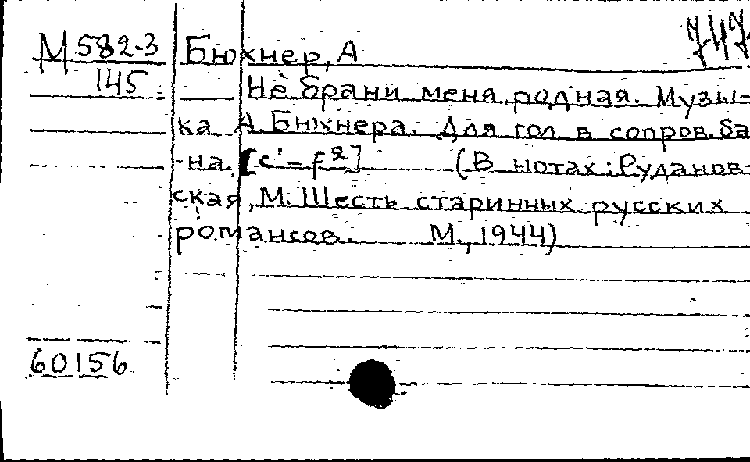 М 582-3 Бюхнер, А
145 Не брани меня, родная. Музы-
ка А. Бюхнера. Для гол. в сопров. ба
на. [c¹-f²] (В нотах: Рудановская, М. Шесть старинных русских
романсов. М., 1944)
60156